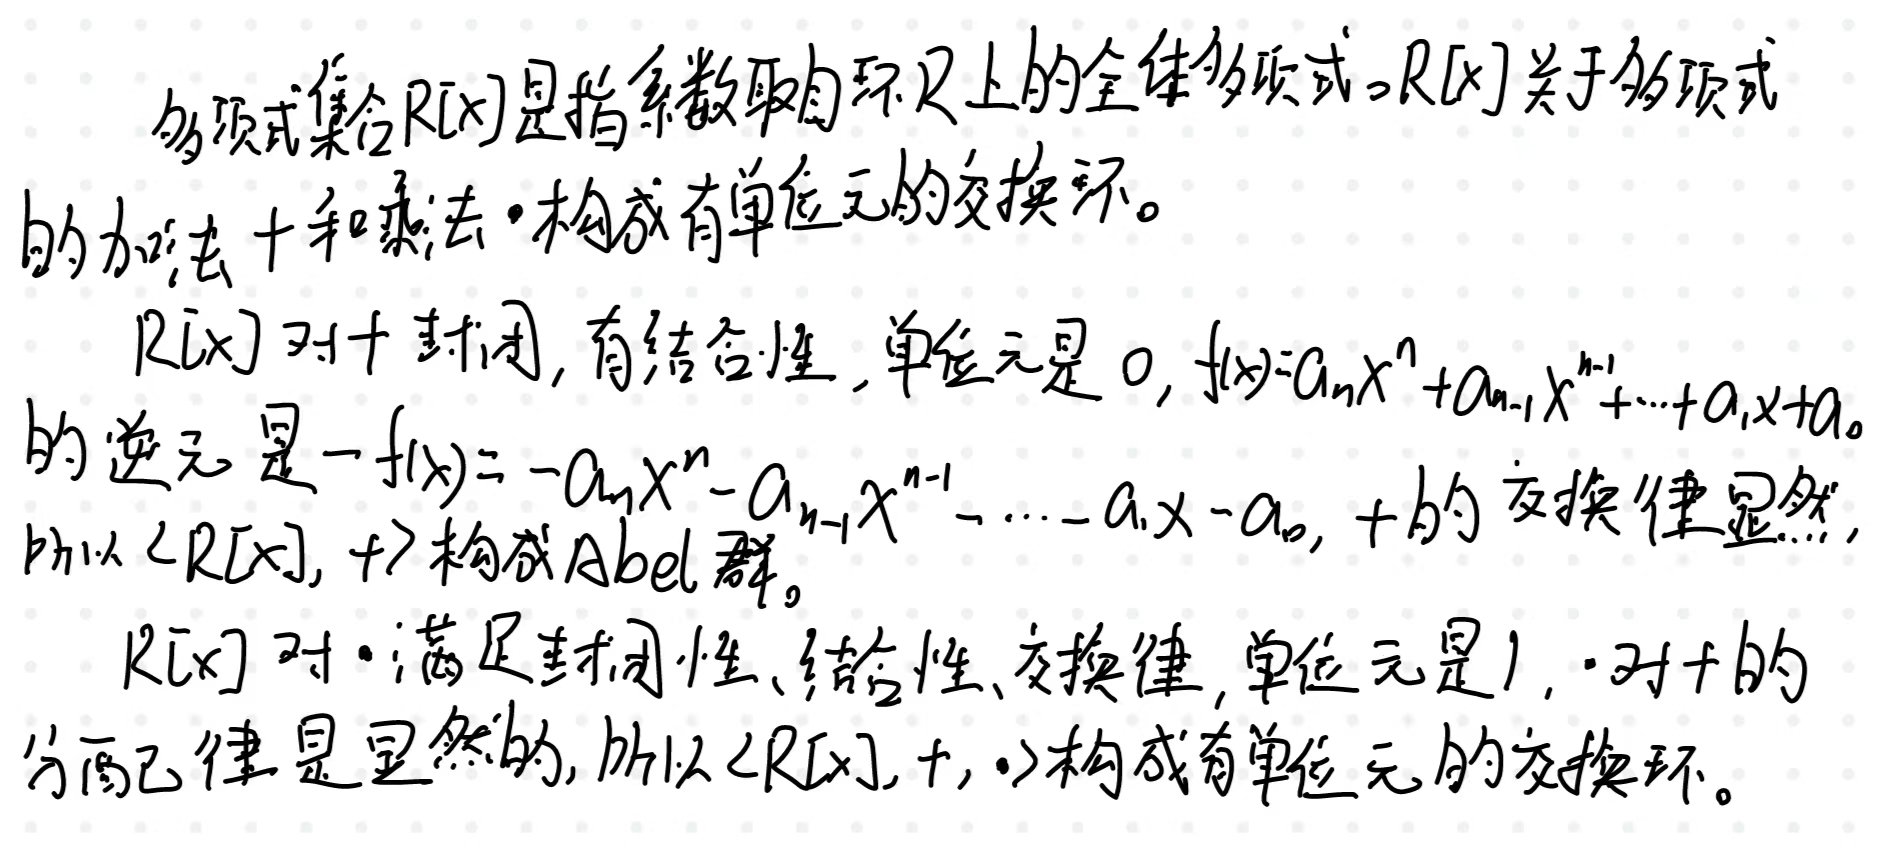 多项式集合R[x]是指系数取自环R上的全体多项式。R[x]关于多项式
的加法+和乘法·构成有单位元的交换环。
R[x]对+封闭,有结合性,单位元是0,f(x)=aₙxⁿ+aₙ₋₁xⁿ⁻¹+…+a₁x+a₀
的逆元是-f(x)=-aₙxⁿ-aₙ₋₁xⁿ⁻¹-…-a₁x-a₀,+的交换律显然,
所以<R[x],+>构成Abel群。
R[x]对·满足封闭性、结合性、交换律,单位元是1,·对+的
分配律是显然的,所以<R[x],+,·>构成有单位元的交换环。